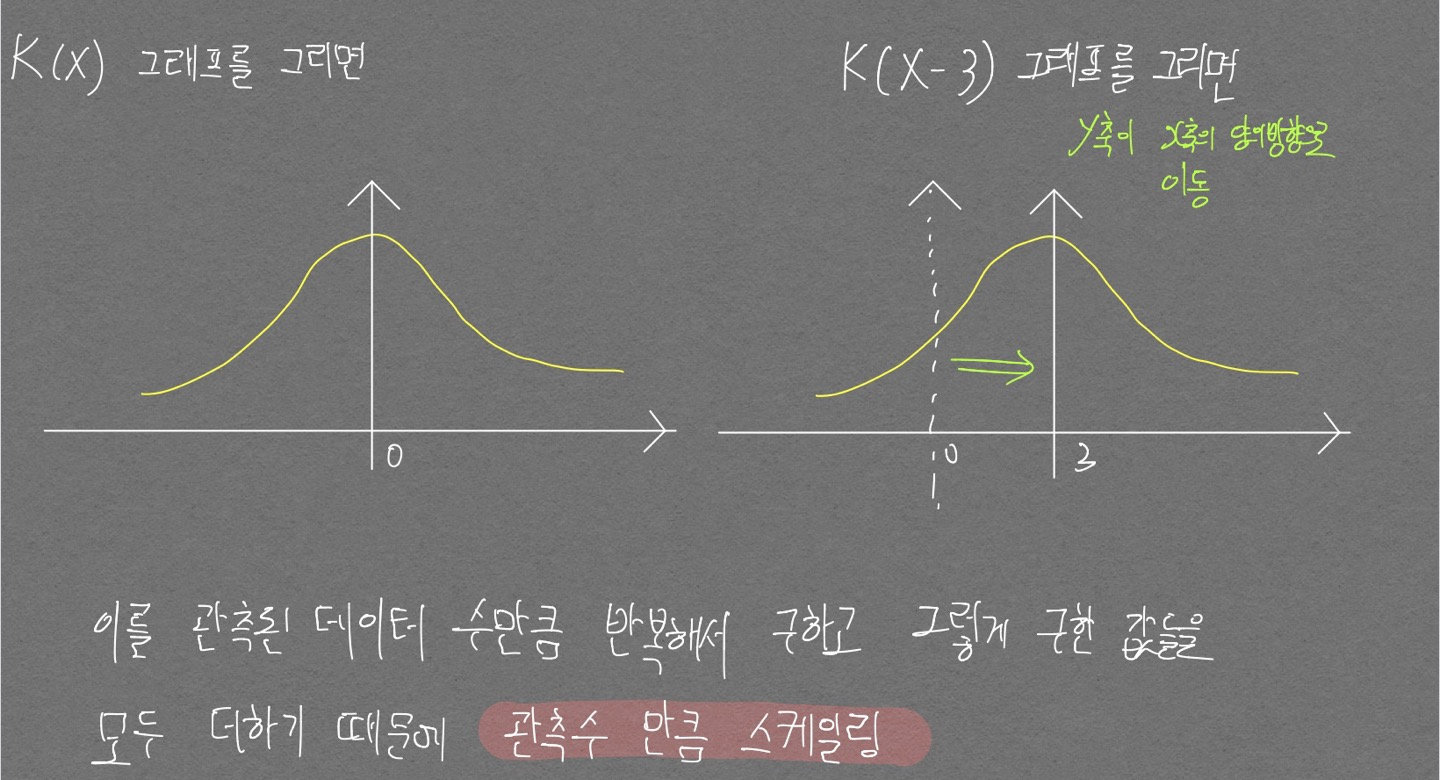 K(X) 그래프를 그리면
K(X-3) 그래프를 그리면
y축이 x축의 양의방향으로
이동
0
0
3
이를 관측된 데이터 수만큼 반복해서 구하고 그렇게 구한 값들을
모두 더하기 때문에 관측수 만큼 스케일링